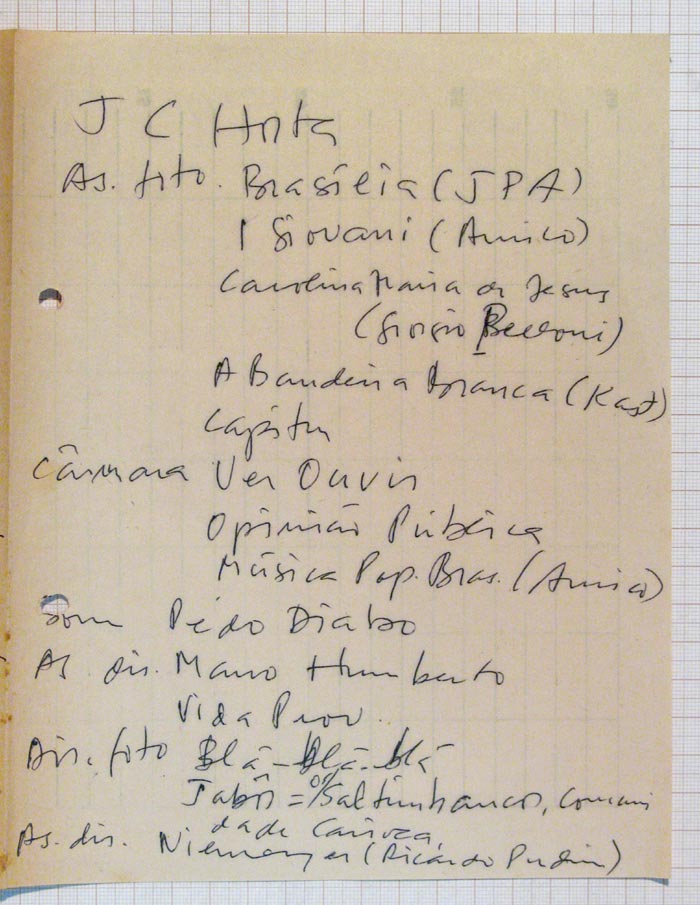 J C Horta
As. foto. Brasília (JPA)
I Giovani (Amico)
Carolina Maria de Jesus
(Giorgio Belloni)
A Bandeira Branca (Kast)
Capitu
Câmara Ver Ouvir
Opinião Pública
Música Pop. Bras. (Amico)
Som Pé do Diabo
As dir. Mauro Humberto
Vida Prov.
Dir. foto Blá-blá-blá
Jabôr = os Saltimbancos, Comuni
dade Carioca
As. dir. Niemeyer (Ricardo)